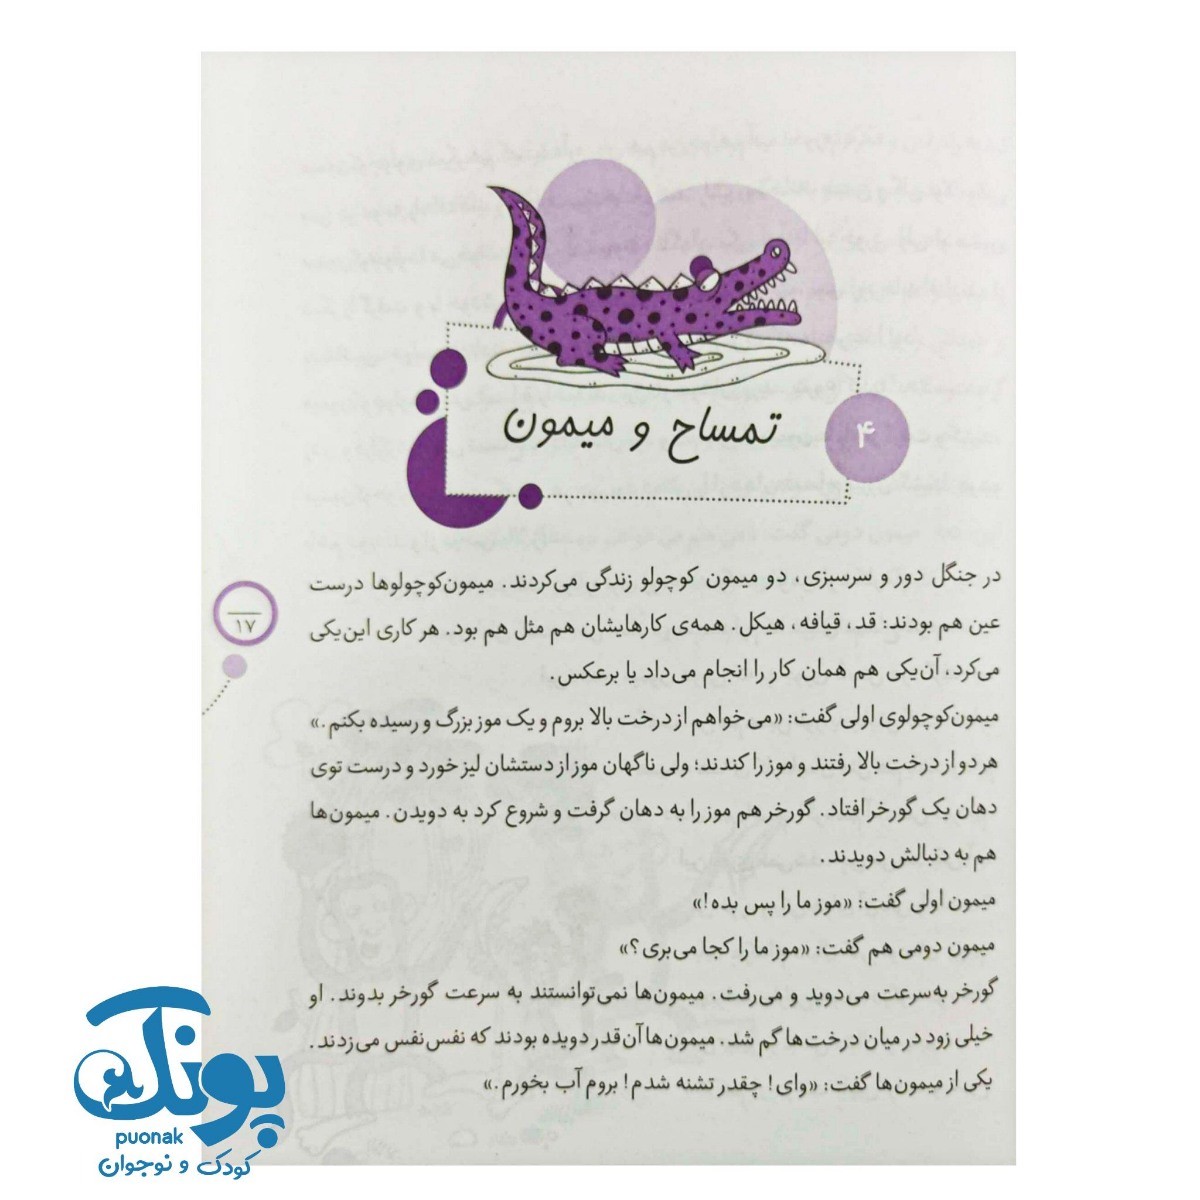 ۴
تمساح و میمون
در جنگل دور و سرسبزی، دو میمون کوچولو زندگی می‌کردند. میمون‌کوچولوها درست
عین هم بودند: قد، قیافه، هیکل. همه‌ی کارهایشان هم مثل هم بود. هر کاری این‌یکی
می‌کرد، آن‌یکی هم همان کار را انجام می‌داد یا برعکس.
میمون‌کوچولوی اولی گفت: «می‌خواهم از درخت بالا بروم و یک موز بزرگ و رسیده بکنم.»
هر دو از درخت بالا رفتند و موز را کندند؛ ولی ناگهان موز از دستشان لیز خورد و درست توی
دهان یک گورخر افتاد. گورخر هم موز را به دهان گرفت و شروع کرد به دویدن. میمون‌ها
هم به دنبالش دویدند.
میمون اولی گفت: «موز ما را پس بده!»
میمون دومی هم گفت: «موز ما را کجا می‌بری؟»
گورخر به‌سرعت می‌دوید و می‌رفت. میمون‌ها نمی‌توانستند به سرعت گورخر بدوند. او
خیلی زود در میان درخت‌ها گم شد. میمون‌ها آن‌قدر دویده بودند که نفس‌نفس می‌زدند.
یکی از میمون‌ها گفت: «وای! چقدر تشنه شدم! بروم آب بخورم.»
۱۷
پونک
puonak
کودک و نوجوان